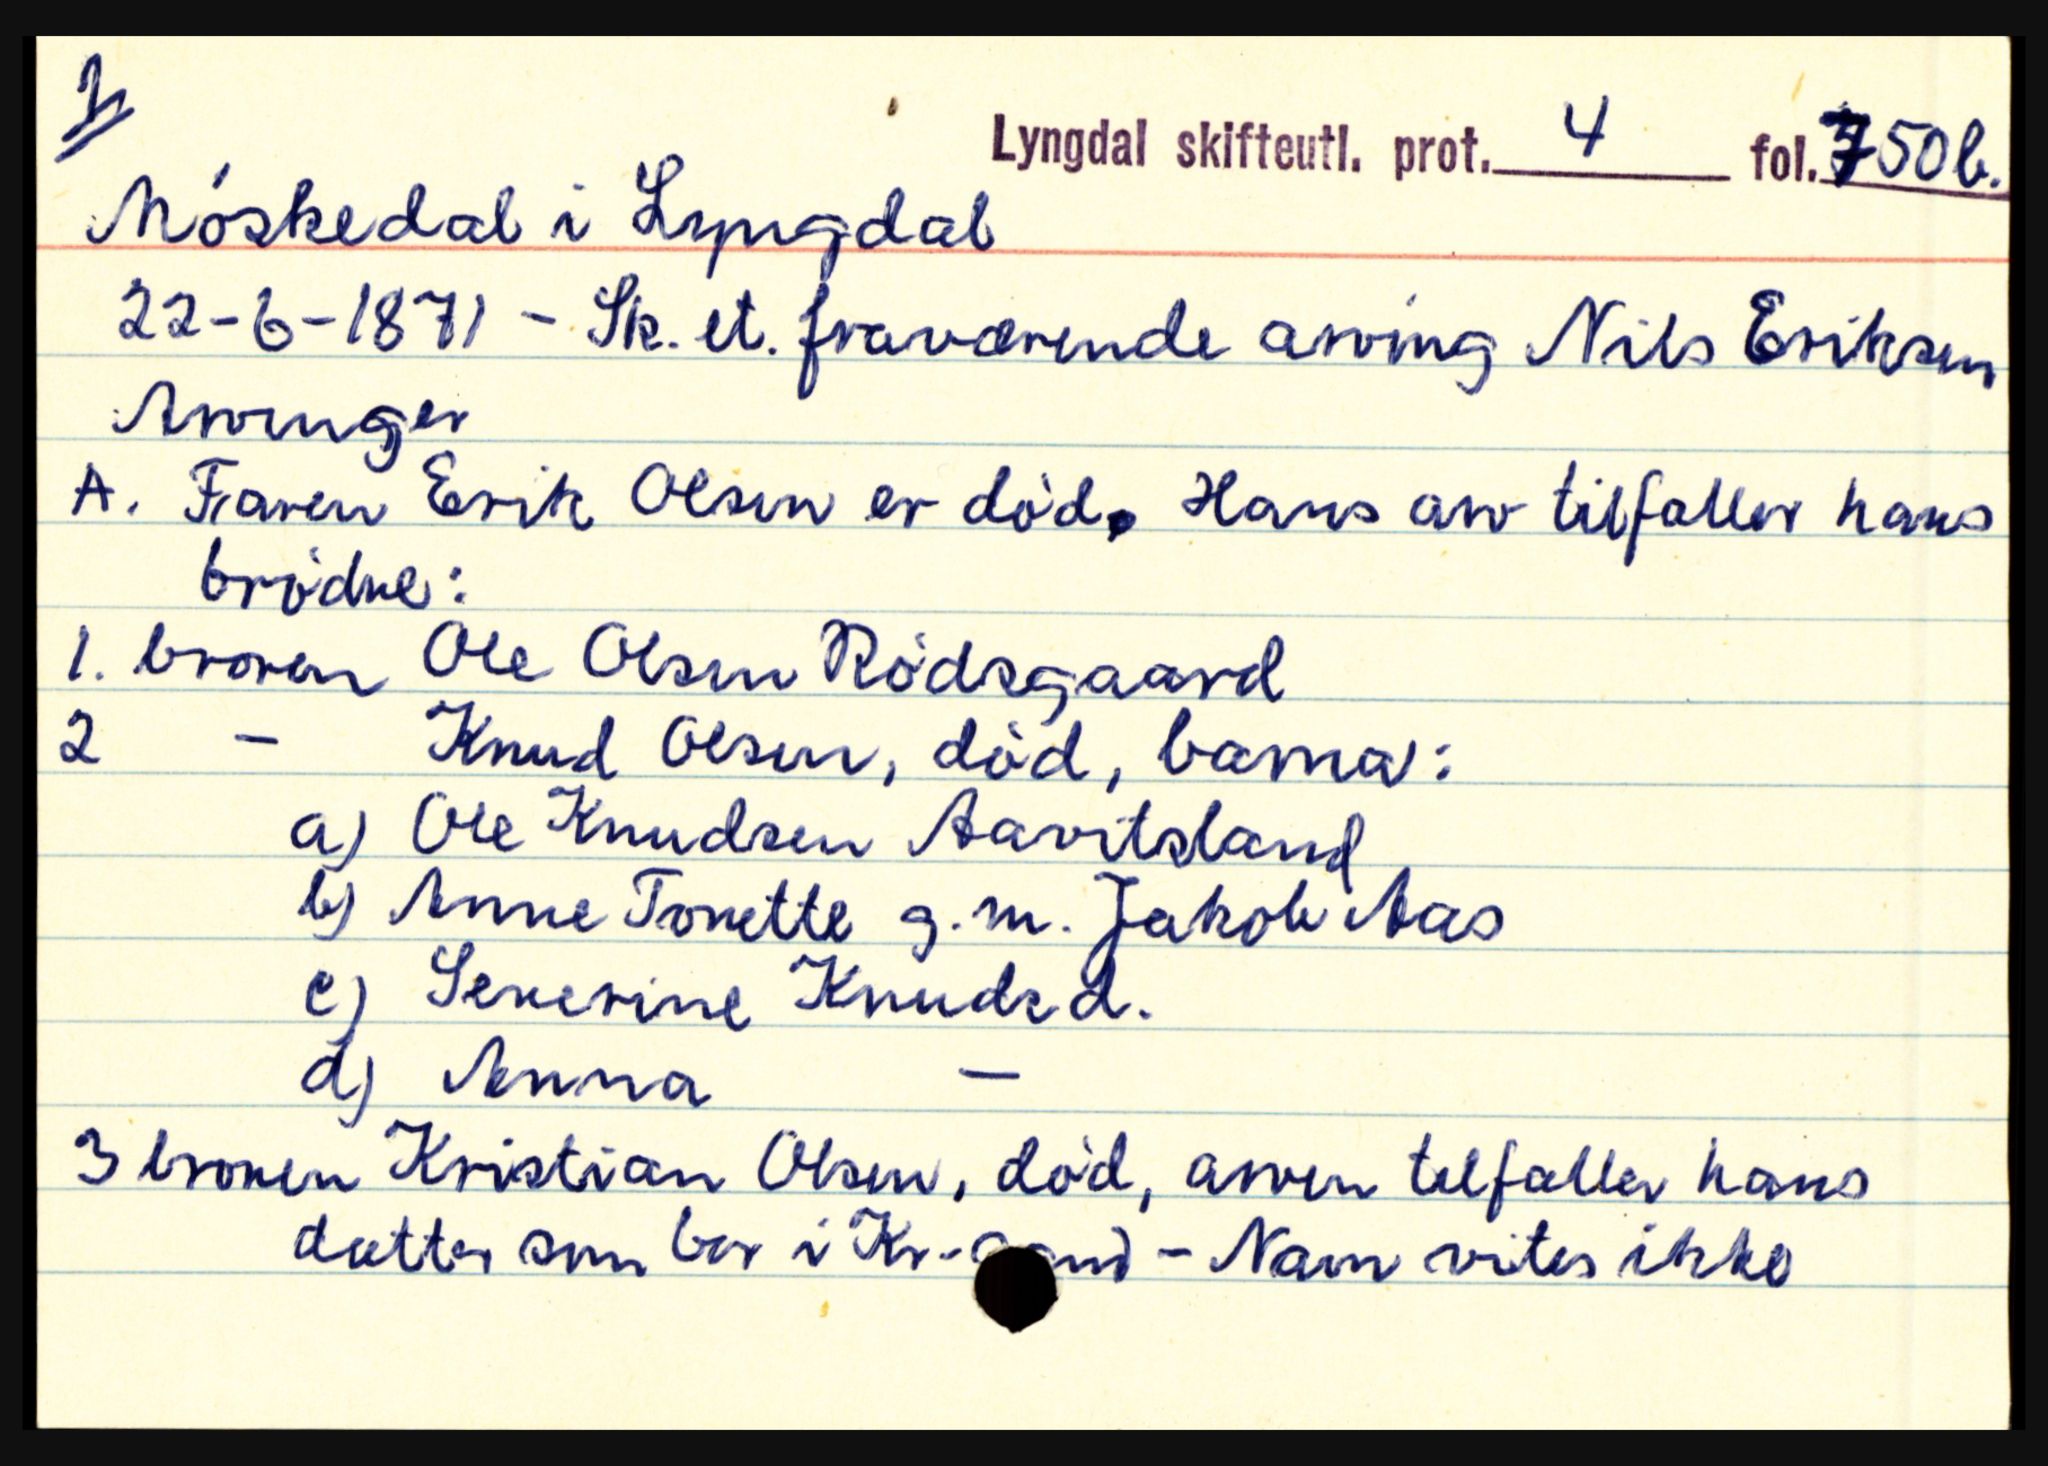 1/
Lyngdal skifteutl. prot. 4 fol. 750b.
Møskedal i Lyngdal
22-6-1871 - Sk. et. fraværende arving Nils Eriksen
Arvinger
A. Faren Erik Olsen er død. Hans arv tilfaller hans
brødre:
1. broren Ole Olsen Rødsgaard
2 - Knud Olsen, død, barna:
a) Ole Knudsen Aavitsland
b) Anne Tonette g.m. Jakob Aas
c) Severine Knudsd.
d) Anna -
3 broren Kristian Olsen, død, arven tilfaller hans
datter som bor i Kr.sand - Navn vites ikke